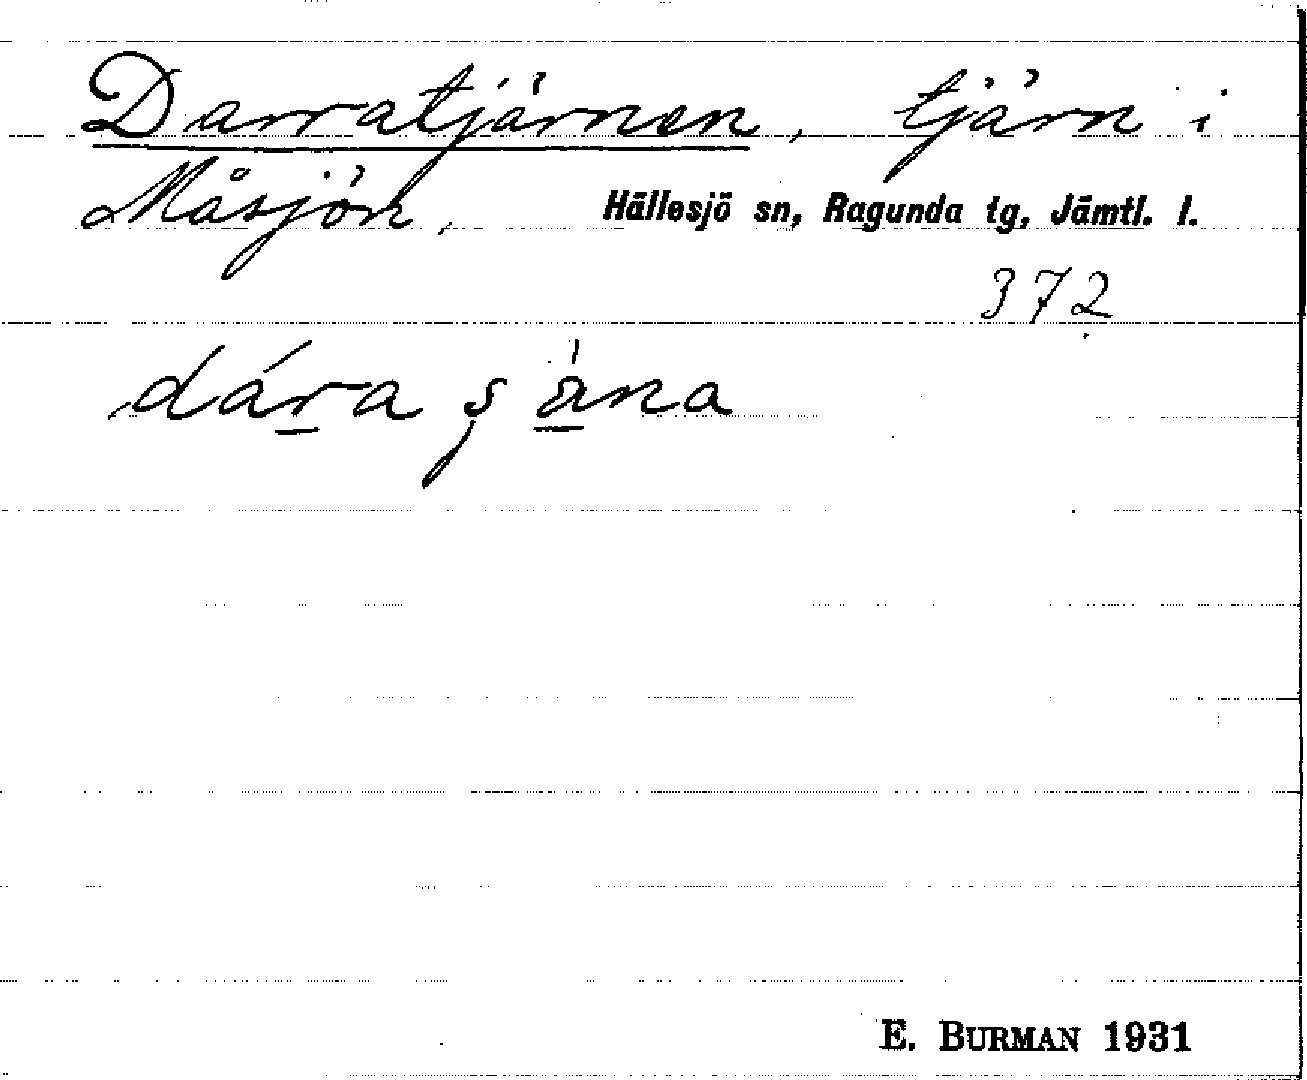 Darratjärnen, tjärn i
Måsjön,
Hällesjö sn, Ragunda tg, Jämtl. l.
372
dára
E. BURMAN 1931